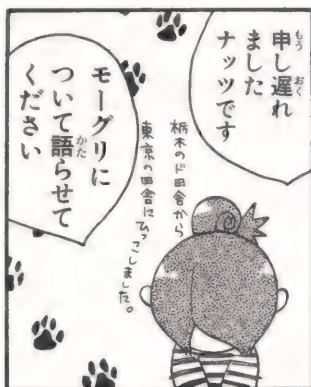 申し遅れ
ました
ナッツです
栃木のド田舎から
東京の田舎に
ひっこしました。
モーグリに
ついて語らせて
ください